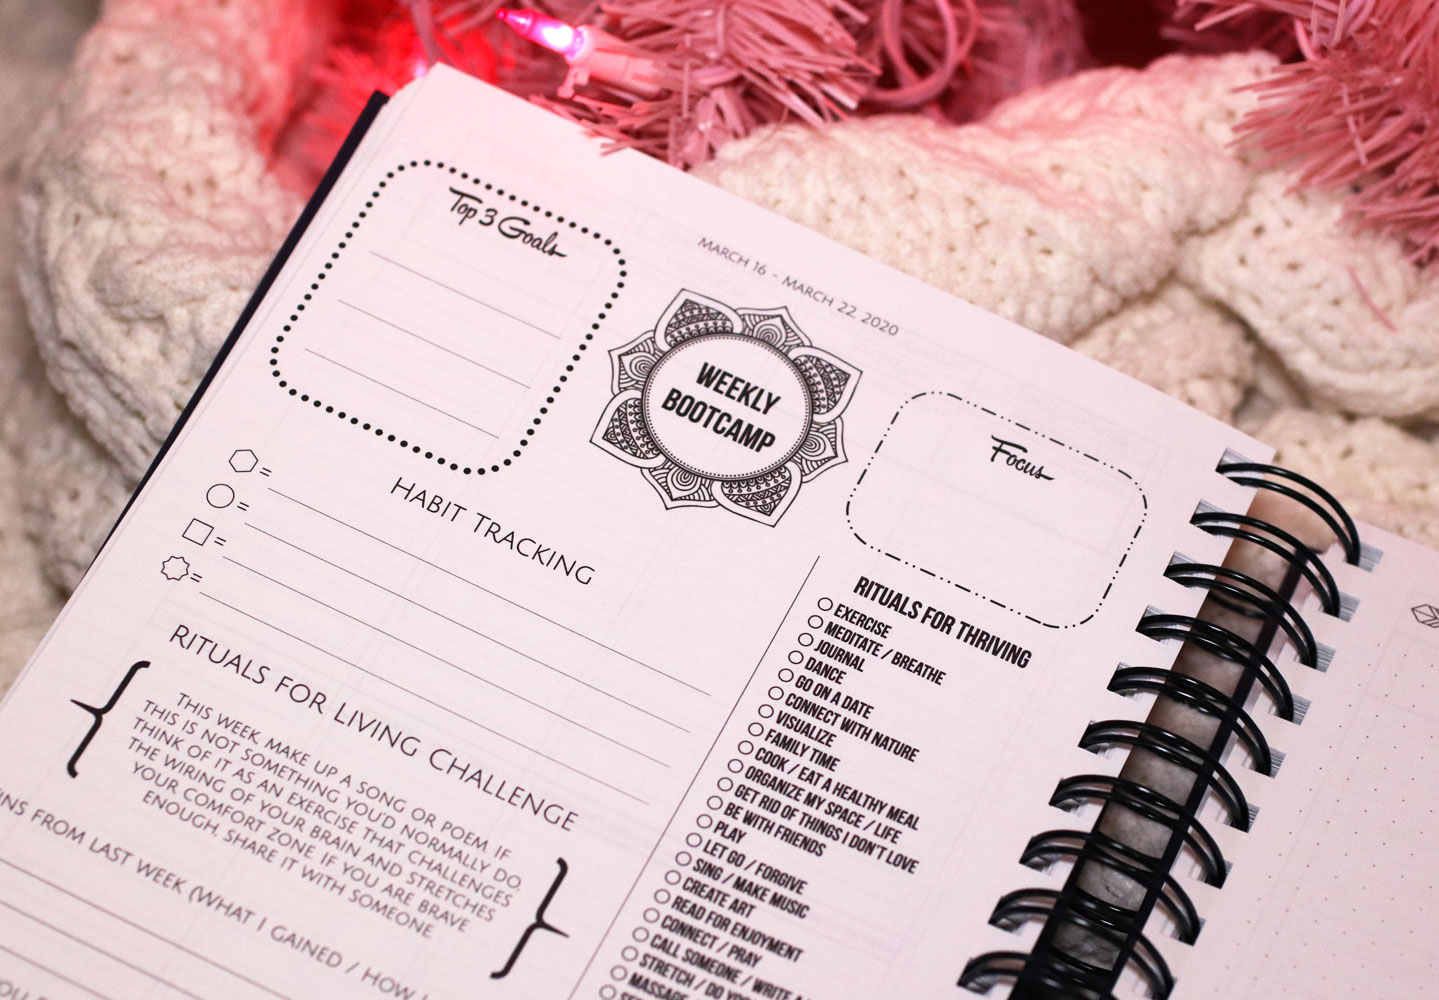 Top 3 Goals
MARCH 16 - MARCH 22, 2020
WEEKLY
BOOTCAMP
Focus
HABIT TRACKING
=
=
=
=
RITUALS FOR LIVING CHALLENGE
THIS WEEK, MAKE UP A SONG OR POEM. IF
THIS IS NOT SOMETHING YOU'D NORMALLY DO,
THINK OF IT AS AN EXERCISE THAT CHALLENGES
THE WIRING OF YOUR BRAIN AND STRETCHES
YOUR COMFORT ZONE. IF YOU ARE BRAVE
ENOUGH, SHARE IT WITH SOMEONE.
FROM LAST WEEK (WHAT I GAINED / HOW
RITUALS FOR THRIVING
EXERCISE
MEDITATE / BREATHE
JOURNAL
DANCE
GO ON A DATE
CONNECT WITH NATURE
VISUALIZE
FAMILY TIME
COOK / EAT A HEALTHY MEAL
ORGANIZE MY SPACE / LIFE
GET RID OF THINGS I DON'T LOVE
BE WITH FRIENDS
PLAY
LET GO / FORGIVE
SING / MAKE MUSIC
CREATE ART
READ FOR ENJOYMENT
CONNECT / PRAY
CALL SOMEONE / WRITE A
STRETCH / DO
MASSAGE